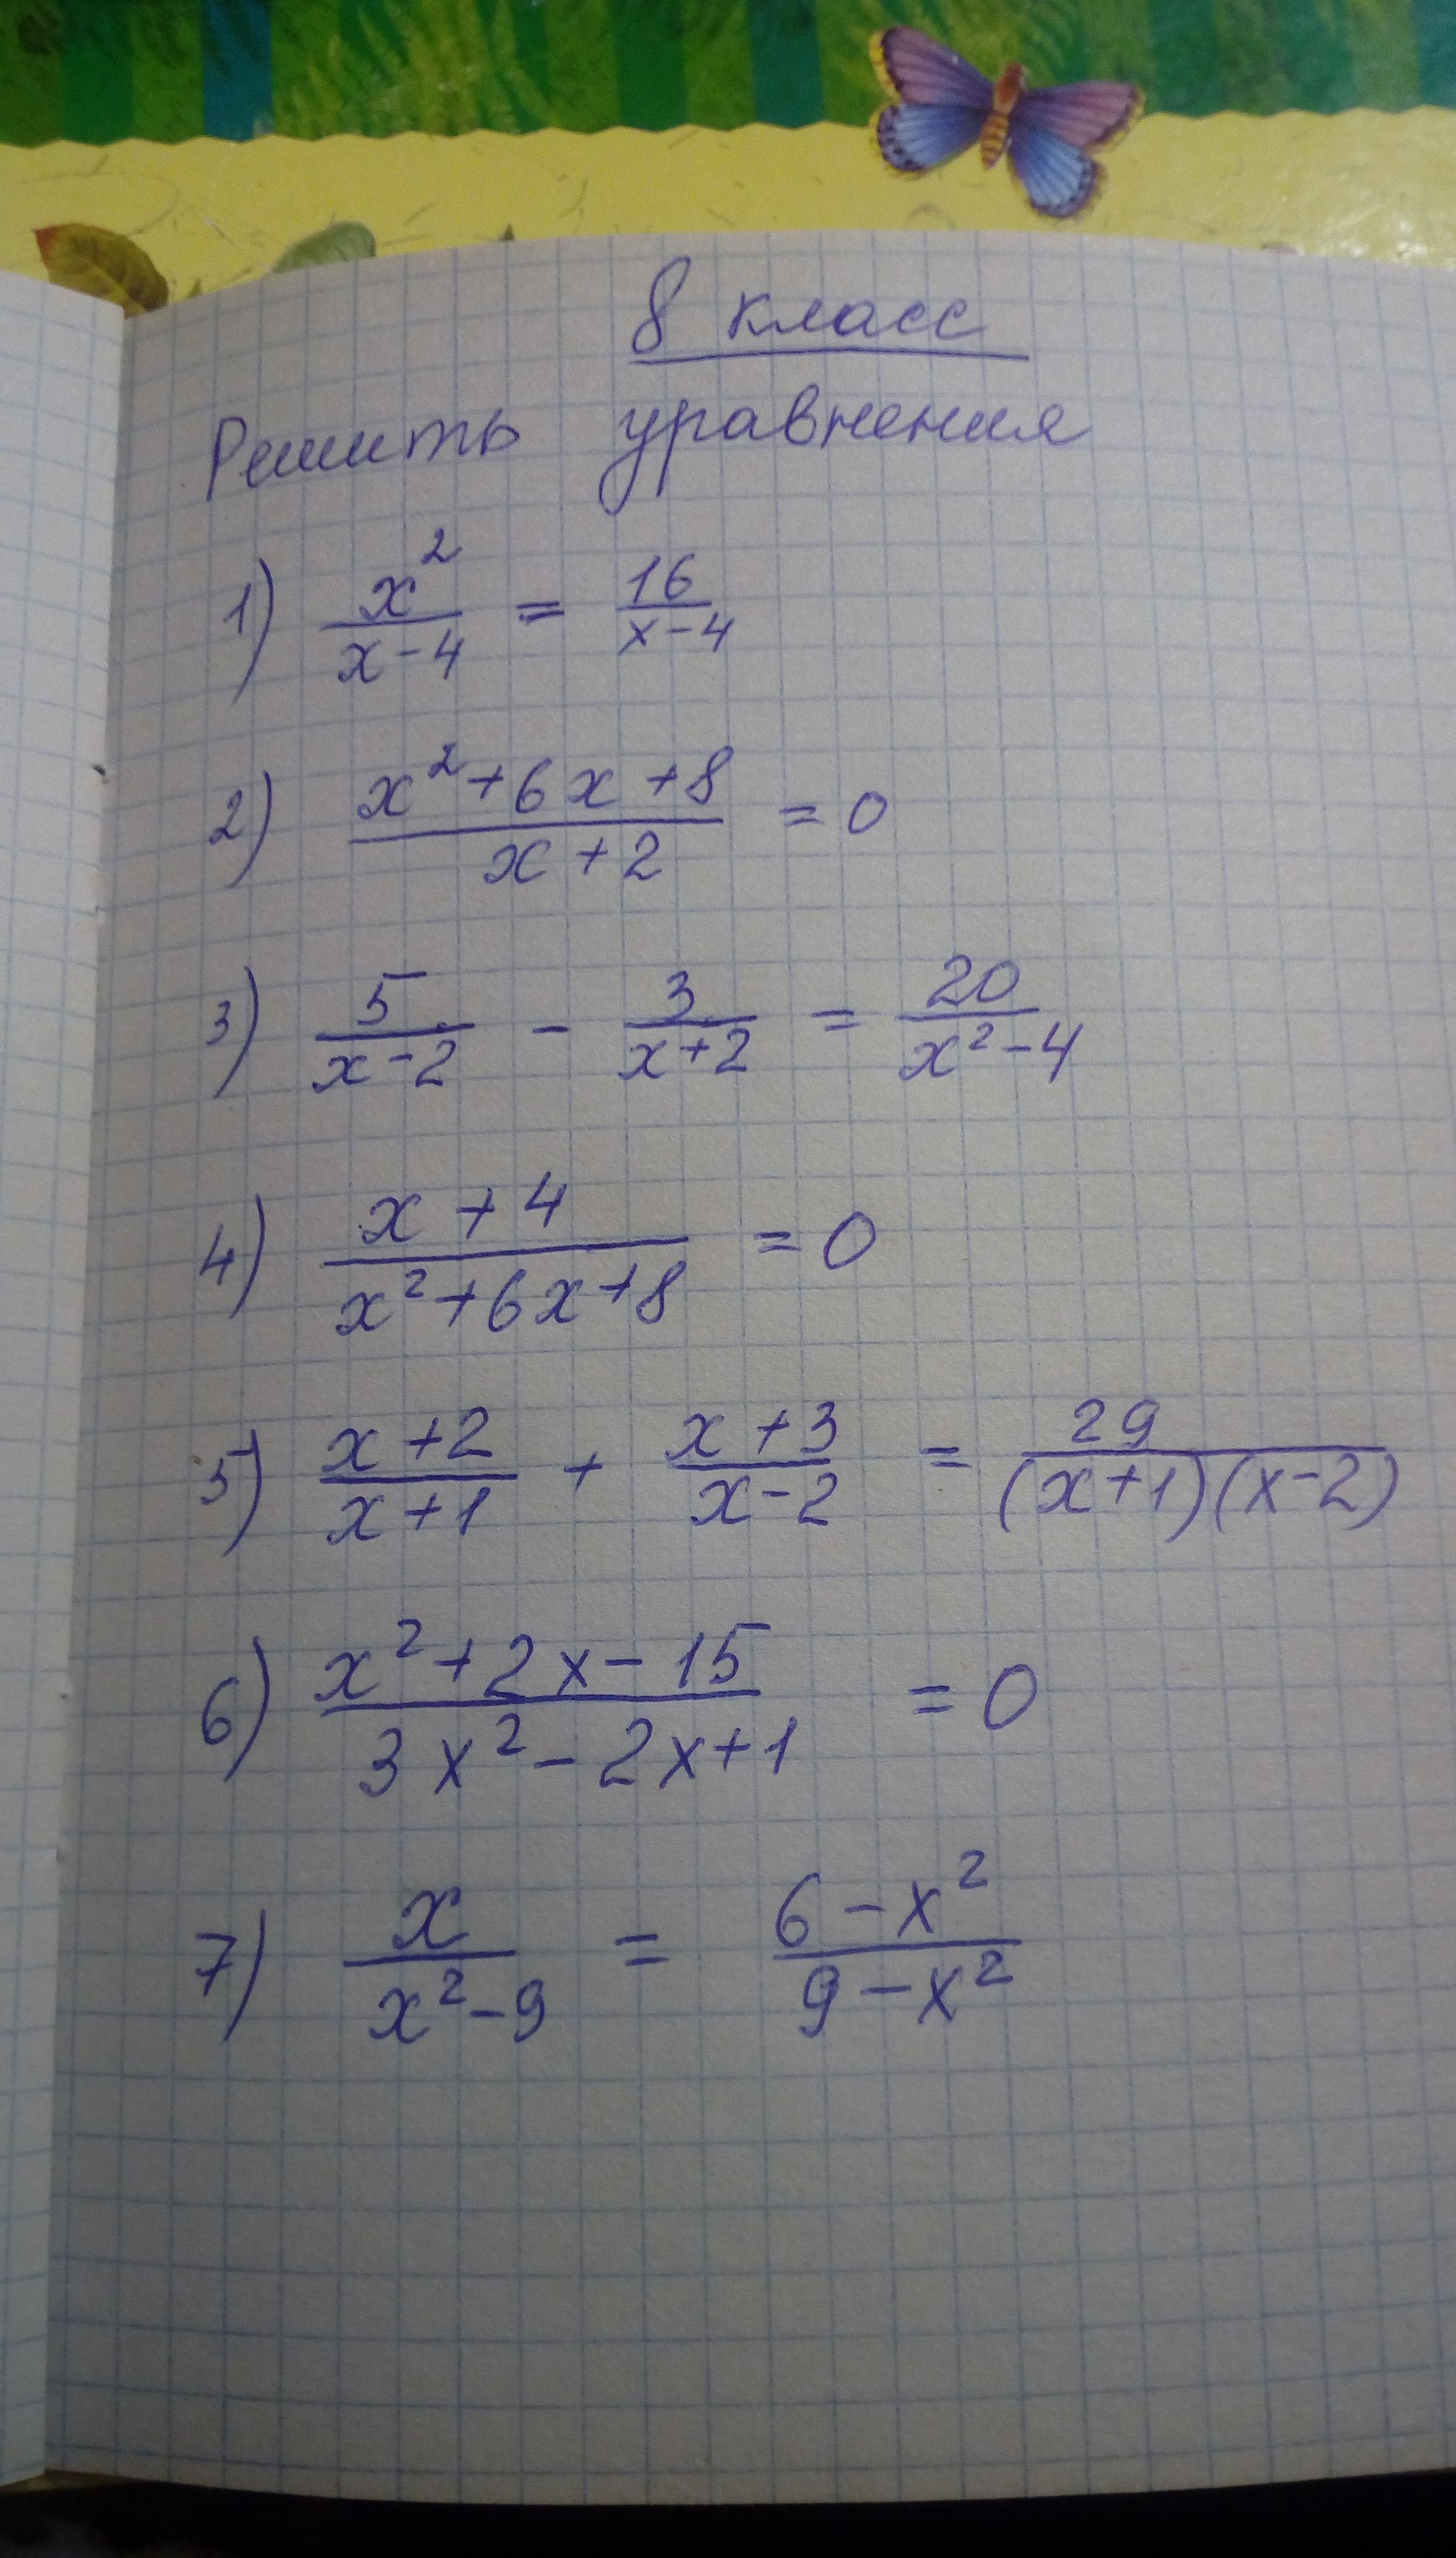 8 класс
Решить уравнения
1) x²/(x-4) = 16/(x-4)
2) (x²+6x+8)/(x+2) = 0
3) 5/(x-2) - 3/(x+2) = 20/(x²-4)
4) (x+4)/(x²+6x+8) = 0
5) (x+2)/(x+1) + (x+3)/(x-2) = 29/((x+1)(x-2))
6) (x²+2x-15)/(3x²-2x+1) = 0
7) x/(x²-9) = (6-x²)/(9-x²)